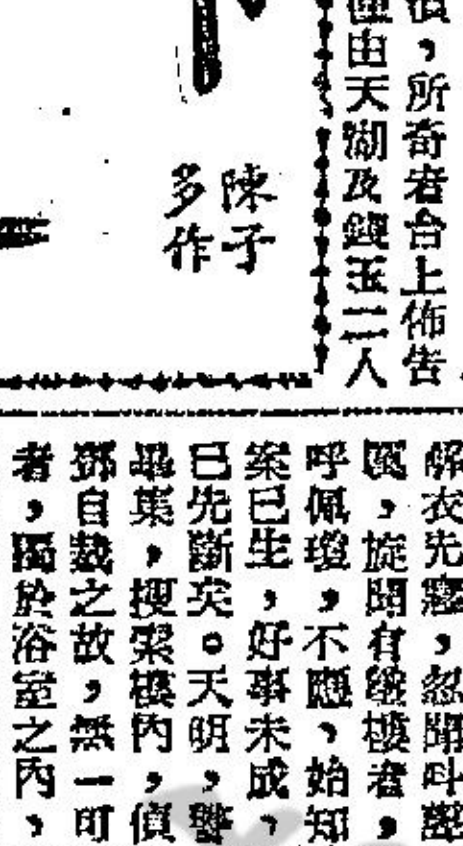 濆，所奇者台上佈告
僅由天湖及錢玉二人
陳子
多作
解衣先寢，忽聞叫聲
，旋聞有墜樓者，
呼佩瓊，不應，始知
案已生，好事未成，
已先斷矣。天明，警
畢集，搜索樓內，偵
鄧自裁之故，無一可
者，獨於浴室之內，